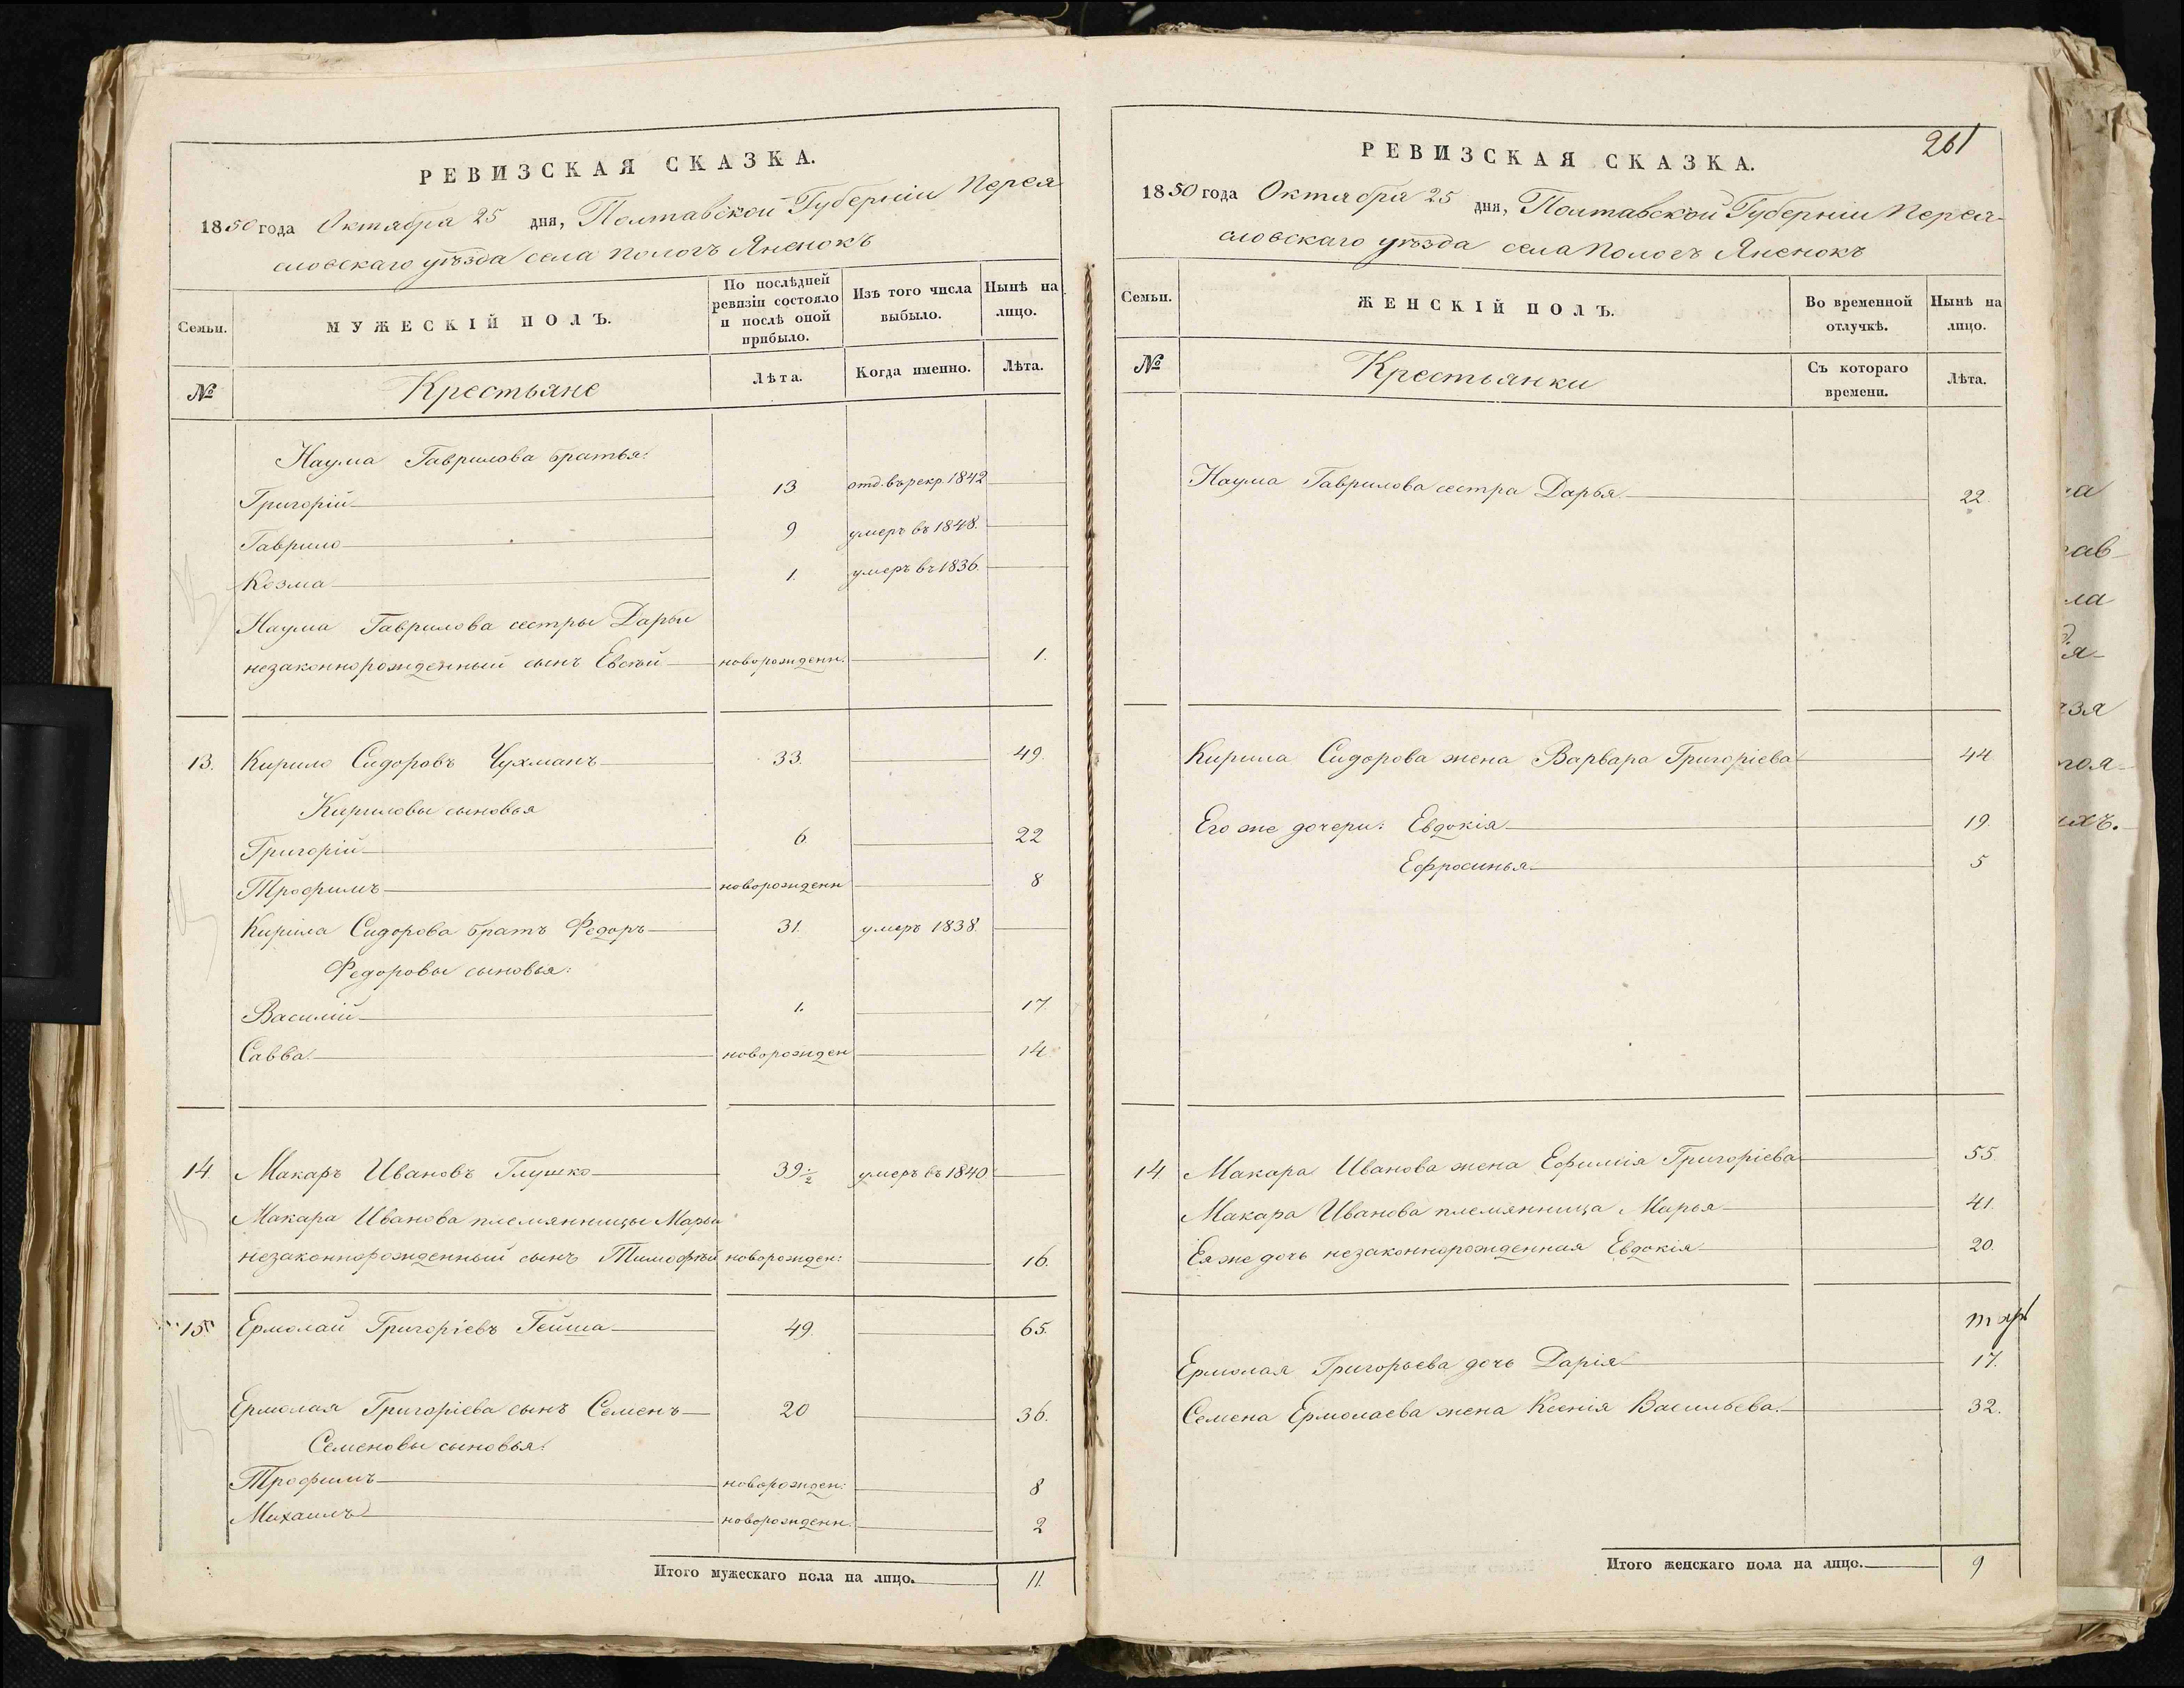 РЕВИЗСКАЯ СКАЗКА.
1850 года Октября 25 дня, Полтавской Губерніи Перея
словскаго уѣзда села Пологъ Яненокъ
Семьи.
МУЖЕСКІЙ ПОЛЪ.
По послѣдней ревизіи состояло и послѣ оной прибыло.
Изъ того числа выбыло.
Нынѣ на лицо.
№
Крестьяне
Лѣта.
Когда именно.
Лѣта.
Наума Гаврилова братья:
Григорій 13 отд. въ рекр. 1842
Гаврило 9 умеръ въ 1848.
Козма 1. умеръ въ 1836.
Наума Гаврилова сестры Дарьи
незаконнорожденный сынъ Евсѣй новорожденн. 1.
13. Кирило Сидоровъ Чухманъ 33. 49.
Кириловы сыновья
Григорій 6 22
Трофимъ новорожденн 8
Кирила Сидорова братъ Федоръ 31. умеръ 1838.
Федоровы сыновья:
Василій 1. 17.
Савва новорожден 14.
14. Макаръ Ивановъ Глушко 39 1/2 умеръ въ 1840
Макара Иванова племянницы Марьи
незаконнорожденный сынъ Тимофѣй новорожден: 16.
15 Ермолай Григоріевъ Гейша 49. 65.
Ермолая Григоріева сынъ Семенъ 20 36.
Семеновы сыновья:
Трофимъ новорожден: 8
Михаилъ новорожденн. 2
Итого мужескаго пола на лицо. 11.
261
РЕВИЗСКАЯ СКАЗКА.
1850 года Октября 25 дня, Полтавской Губерніи Перея-
словскаго уѣзда села Пологъ Яненокъ
Семьи.
ЖЕНСКІЙ ПОЛЪ.
Во временной отлучкѣ.
Нынѣ на лицо.
№
Крестьянки
Съ котораго времени.
Лѣта.
Наума Гаврилова сестра Дарья 22.
Кирила Сидорова жена Варвара Григоріева 44
Его же дочери: Евдокія 19
Ефросинья 5
14. Макара Иванова жена Ефимія Григоріева 55.
Макара Иванова племянница Марья 41.
Ея же дочь незаконнорожденная Евдокія 20.
Ермолая Григорьева дочь Дарія 17.
Семена Ермолаева жена Ксенія Васильева. 32.
Итого женскаго пола на лицо. 9